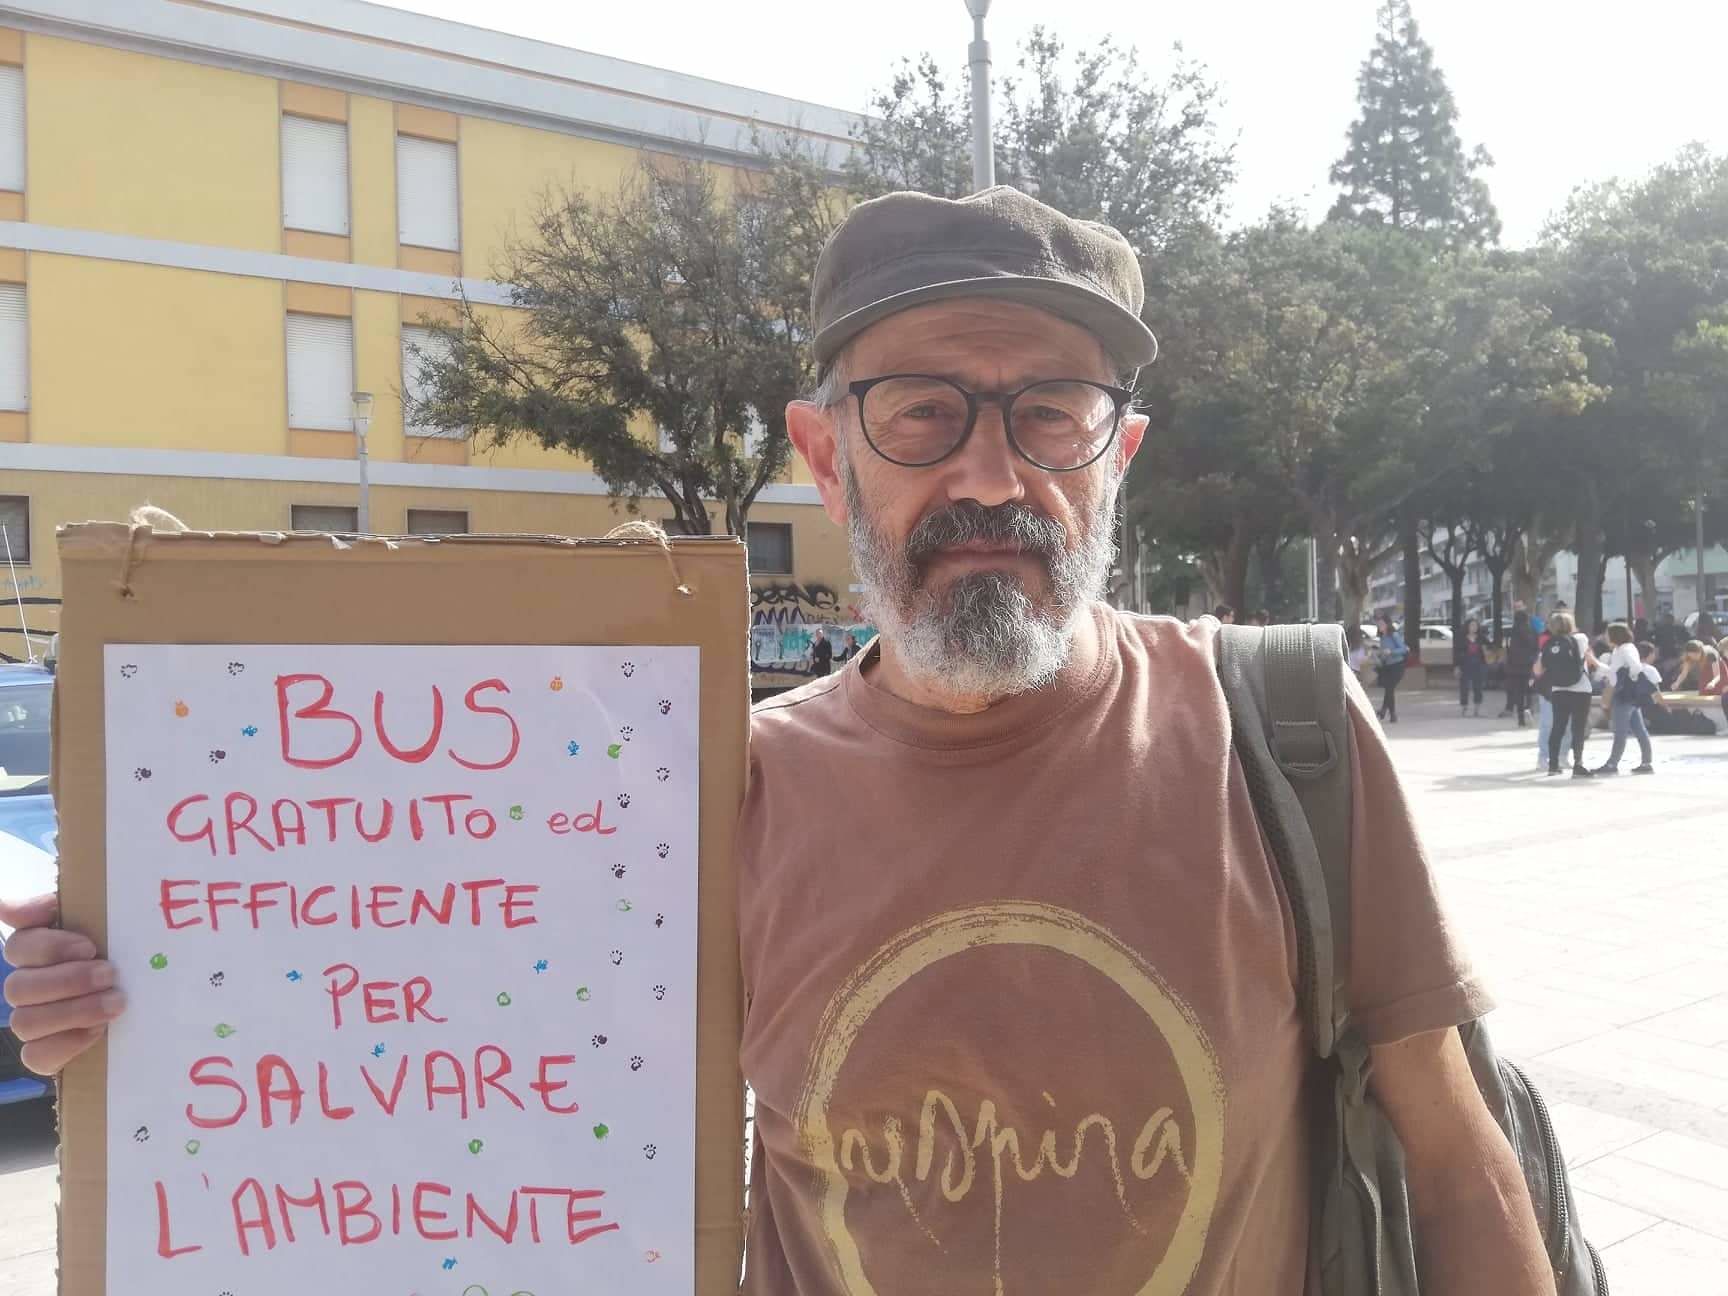 BUS
GRATUITO ed
EFFICIENTE
PER
SALVARE
L'AMBIENTE
respira